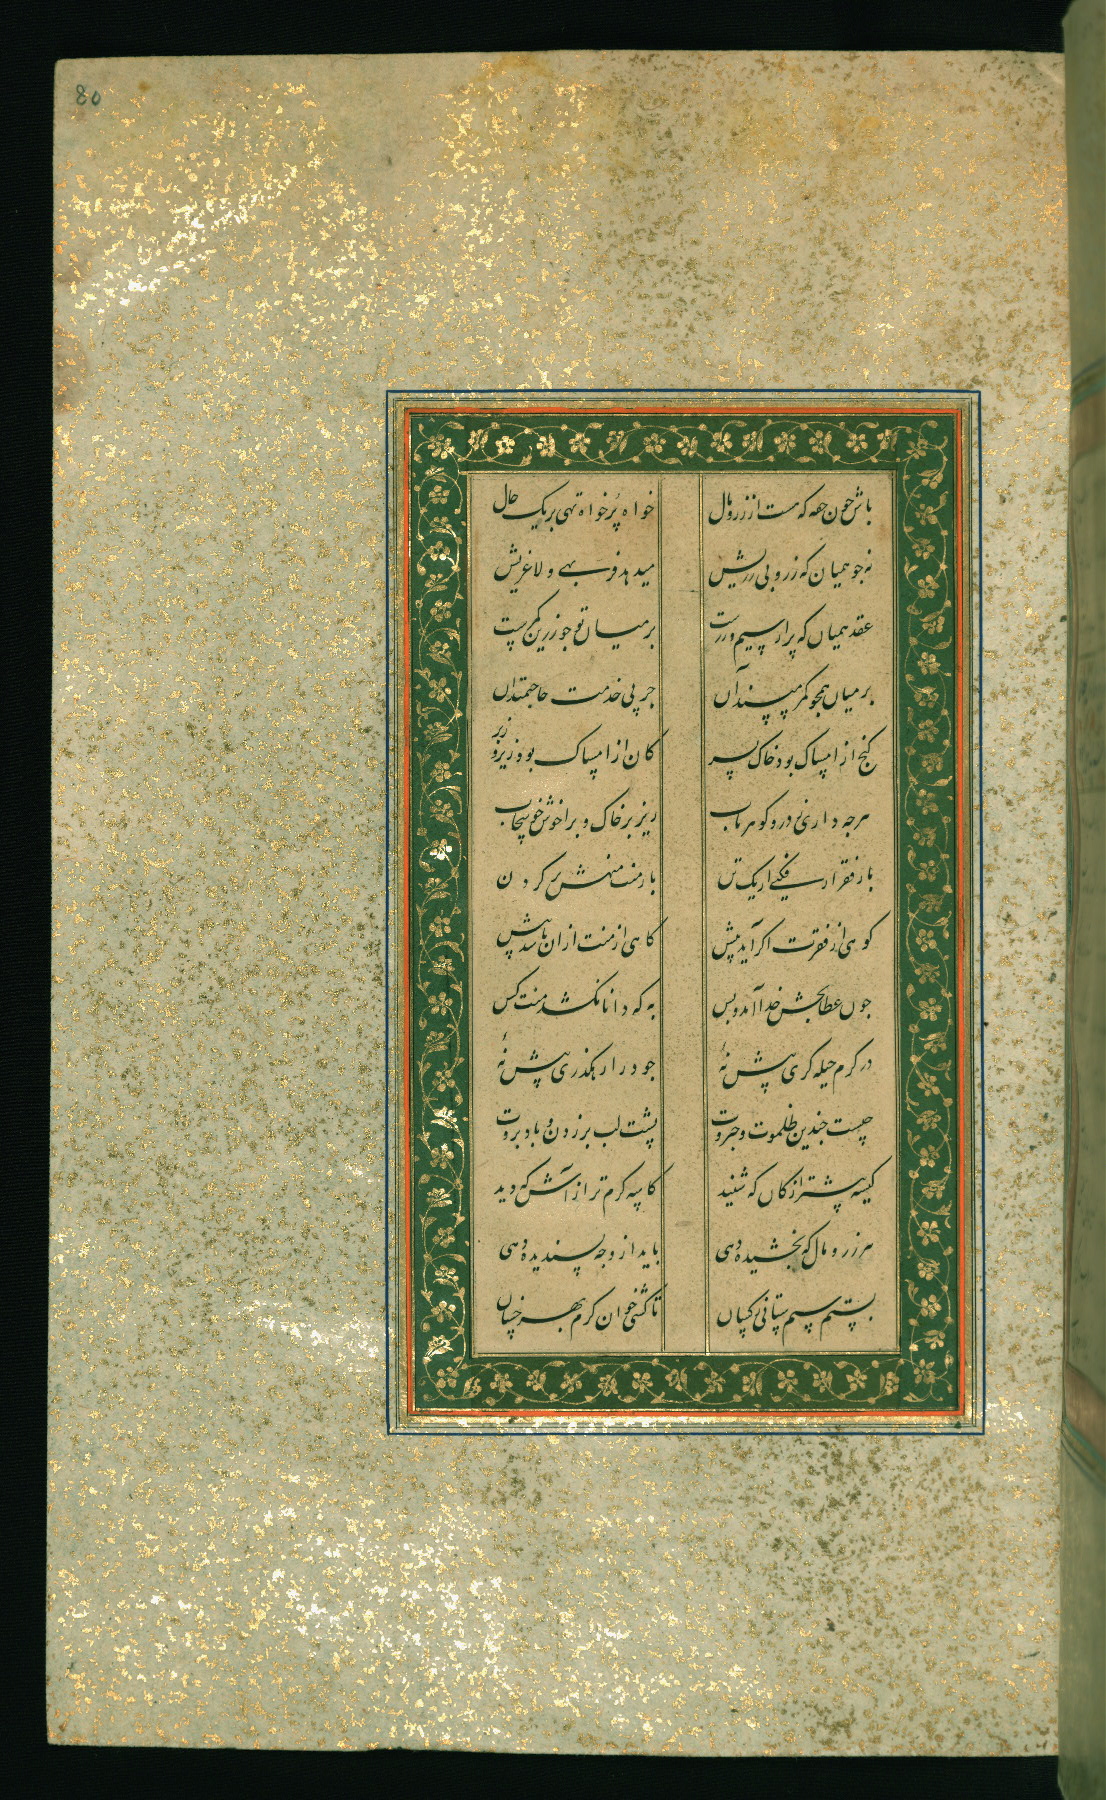 80
باش جون حقه که هست از زر و مال خواه پر خواه تهی بر یک حال
نه جو همیان که زر و بی زریش میدهد فربهی و لاغریش
عقد همیان که پر از سیم و زرست بر میان تو جو زرین کمرست
بر میان همجو کمر مپسند آن جز پی خدمت حاجتمندان
کنج از امساک بود خاک بسر کان از امساک بود زیر و زبر
هرجه داری ز در و کوهر ناب ریز بر خاک و برا خوش جو سحاب
بار فقر ار فکنی از یک تن بار منت منهش بر کردن
کوهی از فقرت اکر آید پیش کاهی از منت ازان باشد بیش
جون عطابخش خدا آمد و بس به که دانا نکشد منت کس
در کرم حیله کری پیش نهٔ جود را رهکذری بیش نهٔ
چیست جندین ظلموت و جبروت پشت لب بر زدن و باد بروت
کیسه بیشتر از کان که شنید کاسه کرم تر از آش که دید
هر زر و مال که بخشیده دهی باید از وجه پسندیده دهی
بستم سیم ستانی ز کسان تا کشی خوان کرم بهر خسان